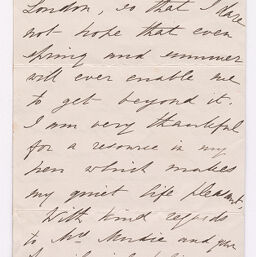 London, so that I dare
not hope that even
spring and summer
will ever enable me
to get beyond it.
I am very thankful
for a resource in my
pen which makes
my quiet life pleasant.
With kind regards
to Mrs Mudie and your